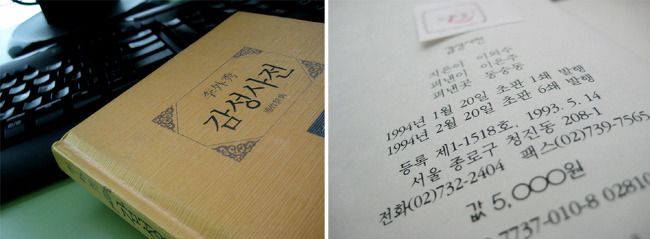 李外秀
감성사전
感性辭典
감성
감성사전
지은이 이외수
펴낸이 이은주
펴낸곳 동숭동
1994년 1월 20일 초판 1쇄 발행
1994년 2월 20일 초판 6쇄 발행
등록 제1-1518호. 1993. 5. 14
서울 종로구 청진동 208-1
전화(02)732-2404 팩스(02)739-7565
값 5,000원
7737-010-8 02810